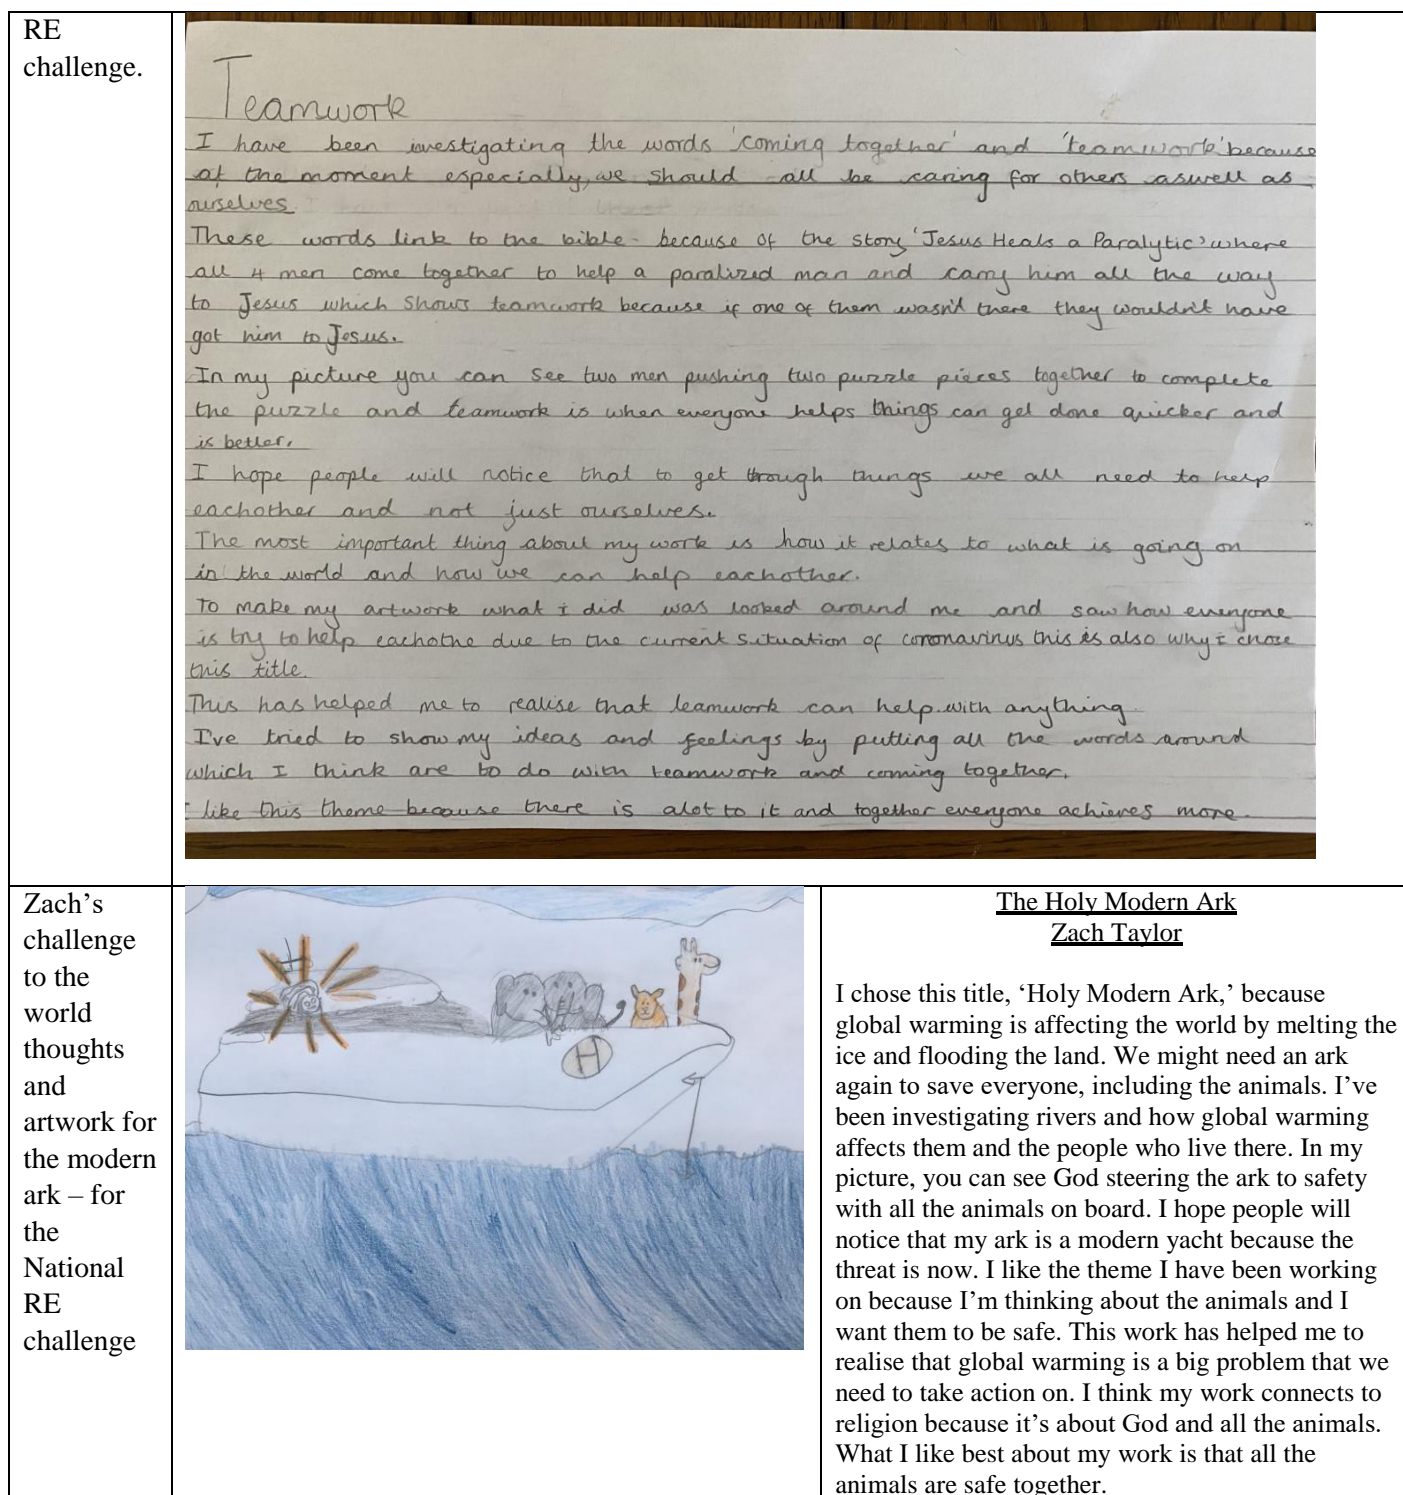 RE
challenge.
Teamwork
I have been investigating the words 'coming together' and 'teamwork' because
at the moment especially, we should all be caring for others aswell as
ourselves.
These words link to the bible because of the story 'Jesus Heals a Paralytic' where
all 4 men come together to help a paralized man and carry him all the way
to Jesus which shows teamwork because if one of them wasn't there they wouldn't have
got him to Jesus.
In my picture you can see two men pushing two puzzle pieces together to complete
the puzzle and teamwork is when everyone helps things can get done quicker and
is better.
I hope people will notice that to get through things we all need to help
eachother and not just ourselves.
The most important thing about my work is how it relates to what is going on
in the world and how we can help eachother.
To make my artwork what i did was looked around me and saw how everyone
is try to help eachothe due to the current situation of coronavirus this is also why i chose
this title.
This has helped me to realise that teamwork can help with anything.
I've tried to show my ideas and feelings by putting all the words around
which I think are to do with teamwork and coming together.
I like this theme because there is alot to it and together everyone achieves more.
Zach's
challenge
to the
world
thoughts
and
artwork for
the modern
ark – for
the
National
RE
challenge
H
The Holy Modern Ark
Zach Taylor
I chose this title, ‘Holy Modern Ark,’ because
global warming is affecting the world by melting the
ice and flooding the land. We might need an ark
again to save everyone, including the animals. I’ve
been investigating rivers and how global warming
affects them and the people who live there. In my
picture, you can see God steering the ark to safety
with all the animals on board. I hope people will
notice that my ark is a modern yacht because the
threat is now. I like the theme I have been working
on because I’m thinking about the animals and I
want them to be safe. This work has helped me to
realise that global warming is a big problem that we
need to take action on. I think my work connects to
religion because it’s about God and all the animals.
What I like best about my work is that all the
animals are safe together.